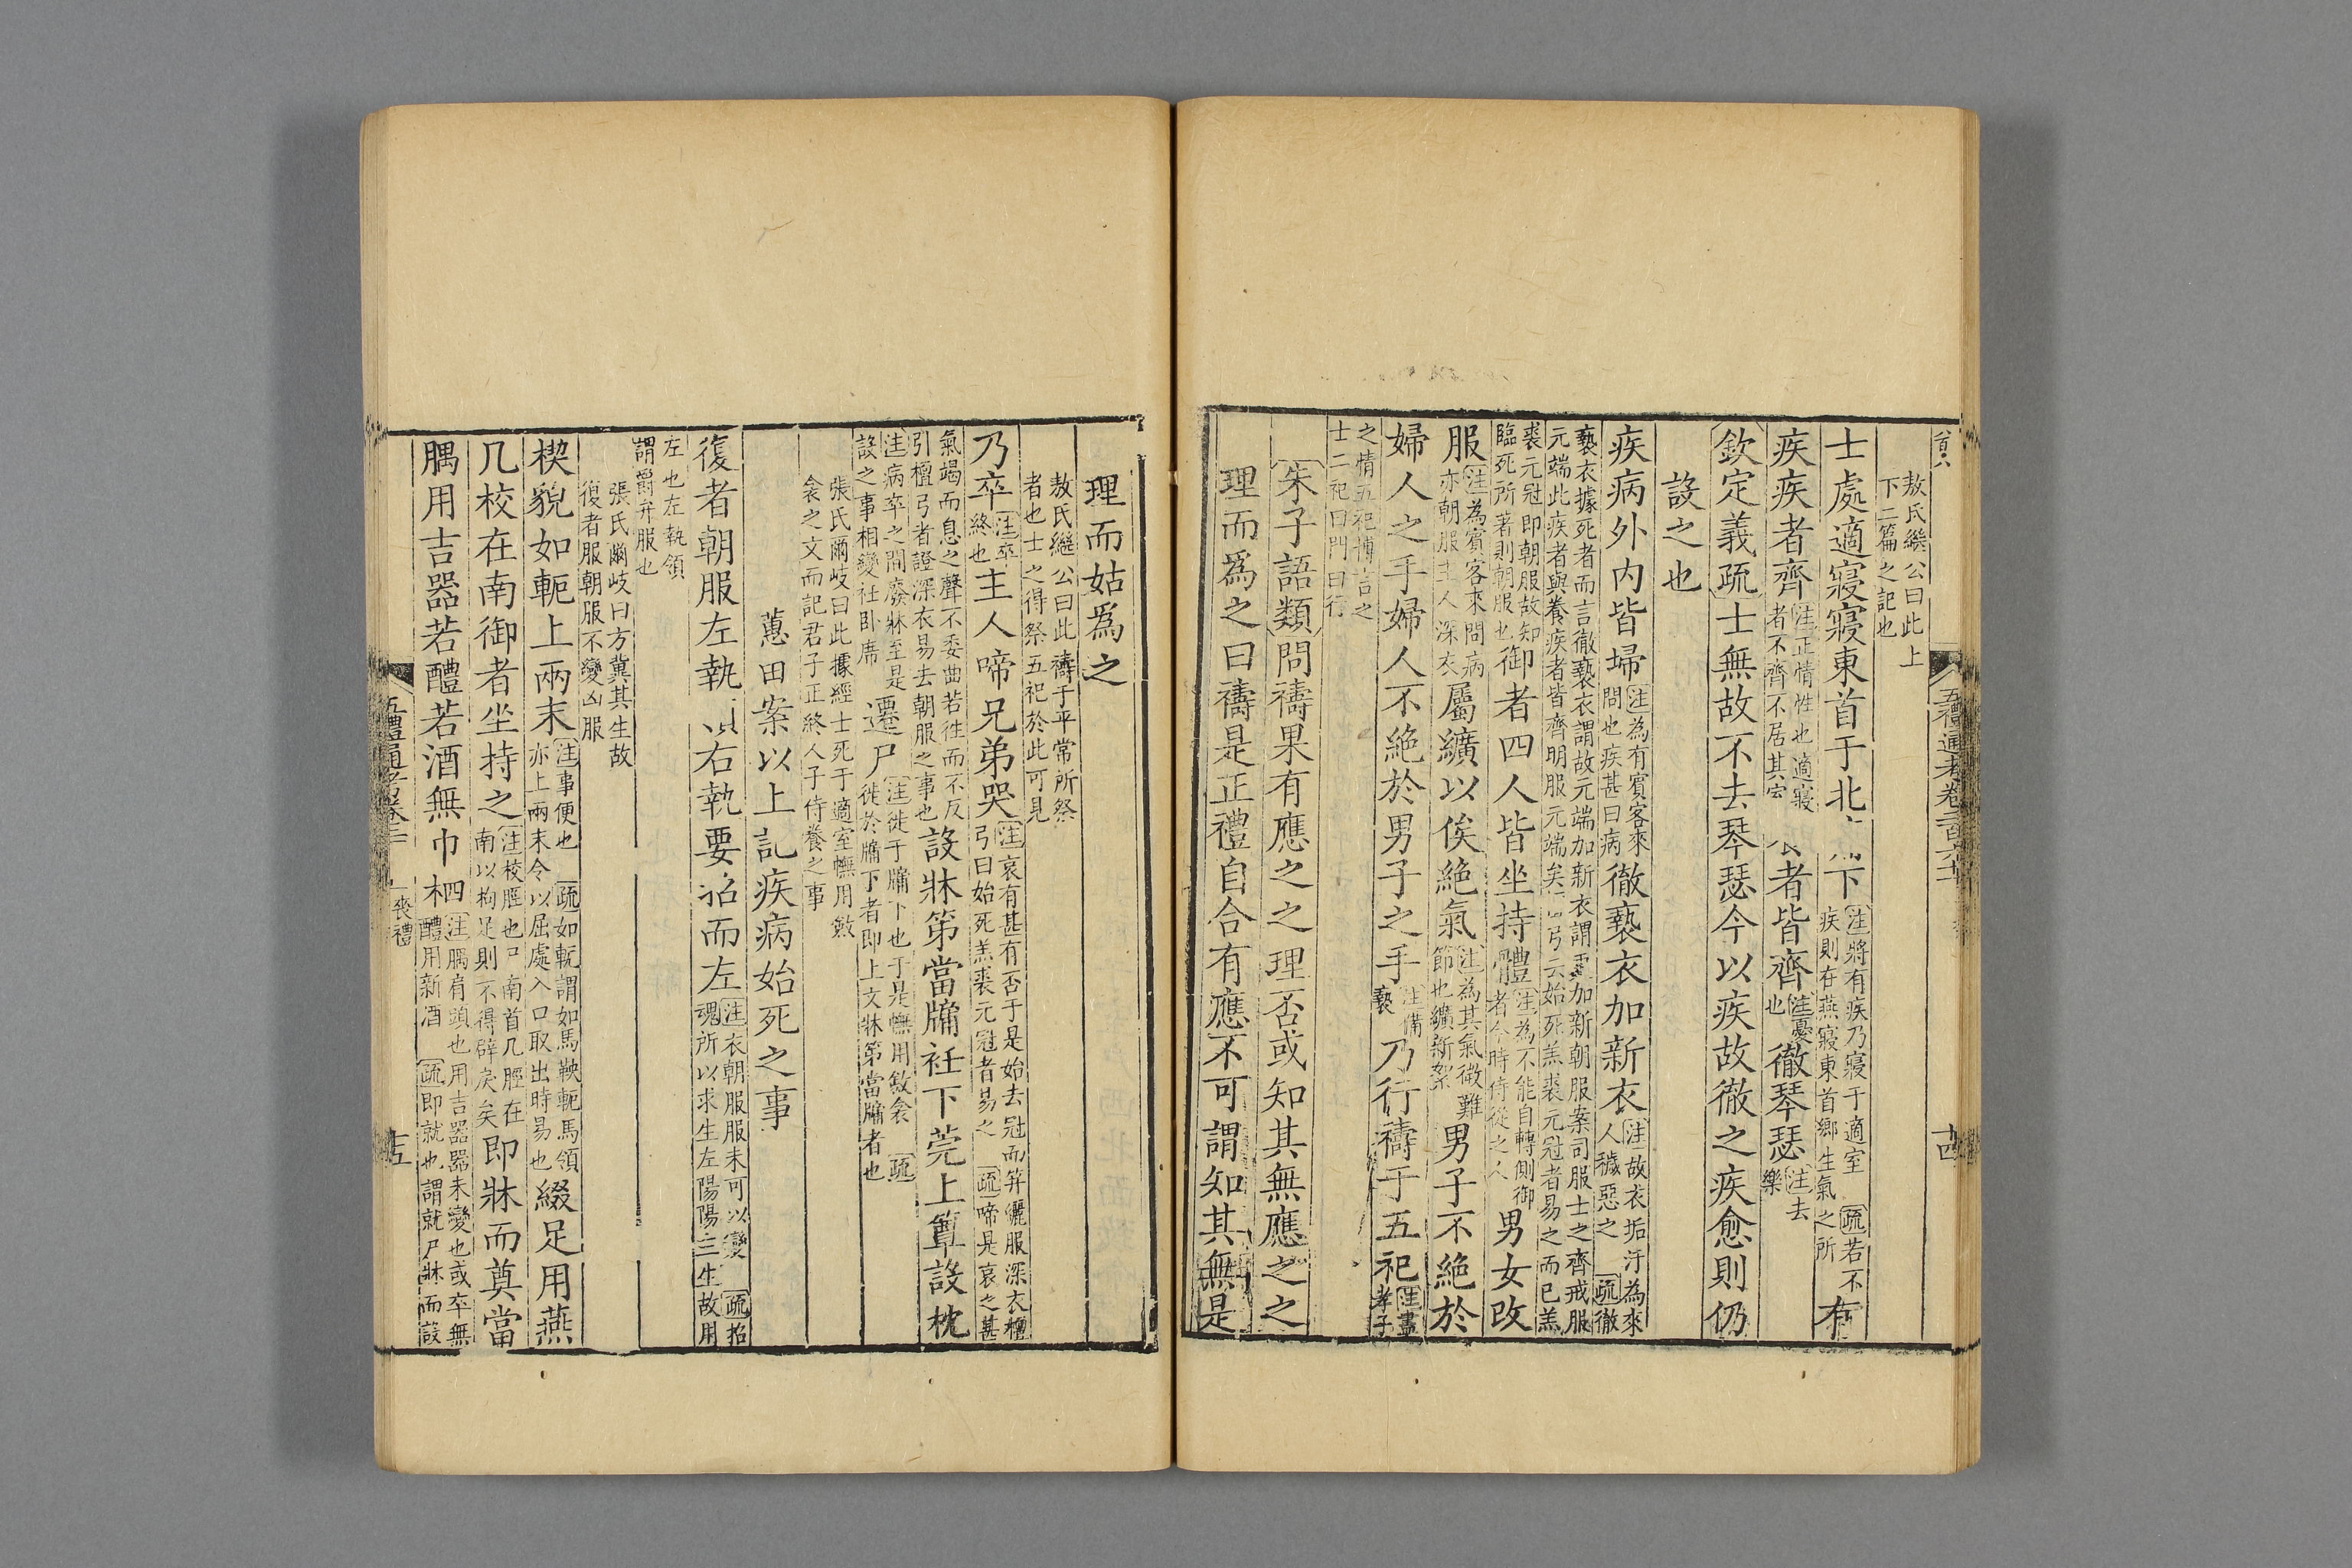 五禮通考卷二百六十
十四
敖氏繼公曰此上
下二篇之記也
士處適寢寢東首于北 下注將有疾乃寢于適室 疏若不有
疾則在燕寢東首鄉生氣之所
疾疾者齊注正情性也適寢
者不齊不居其室 者皆齊注憂也徹琴瑟注去樂
欽定義疏士無故不去琴瑟今以疾故徹之疾愈則仍
設之也
疾病外內皆埽注為有賓客來
問也疾甚曰病徹褻衣加新衣注故衣垢汙為來
人穢惡之 疏徹
褻衣據死者而言徹褻衣謂故元端加新衣謂更加新朝服案司服士之齊戒服
元端此疾者與養疾者皆齊明服元端矣 弓云始死羔裘元冠者易之而已羔
裘元冠即朝服故知
臨死所著則朝服也御者四人皆坐持體注為不能自轉側御
者今時侍從之人男女改
服注為賓客來問病
亦朝服主人深衣屬纊以俟絕氣注為其氣微難
節也纊新絮男子不絕於
婦人之手婦人不絕於男子之手注備
褻乃行禱于五祀注盡
孝子
之情五祀博言之
士二祀曰門曰行
朱子語類問禱果有應之之理否或知其無應之之
理而為之曰禱是正禮自合有應不可謂知其無是
理而姑為之
敖氏繼公曰此禱于平常所祭
者也士之得祭五祀於此可見
乃卒注卒
終也主人啼兄弟哭注哀有甚有否于是始去冠而笄纚服深衣檀
弓曰始死羔裘元冠者易之 疏啼是哀之甚
氣竭而息之聲不委曲若往而不反
引檀弓者證深衣易去朝服之事也設牀第當牖衽下莞上簟設枕
注病卒之間廢牀至是
設之事相變衽臥席 遷尸注徙于牖下也于是幠用斂衾 疏
徙於牖下者即上文牀第當牖者也
張氏爾岐曰此據經士死于適室幠用斂
衾之文而記君子正終人子侍養之事
蕙田案以上記疾病始死之事
復者朝服左執 右執要招而左注衣朝服服未可以變 疏招
魂所以求生左陽陽主生故用
左也左執領
謂爵弁服也
張氏爾岐曰方冀其生故
復者服朝服不變凶服
楔貌如軛上兩末注事便也 疏如軛謂如馬鞅軛馬領
亦上兩末令以屈處入口取出時易也綴足用燕
几校在南御者坐持之注校脛也尸南首几脛在
南以拘足則不得辟戾矣即牀而奠當
腢用吉器若醴若酒無巾柶注腢肩頭也用吉器器未變也或卒無
醴用新酒 疏即就也謂就尸牀而設
五禮通考卷二百六十
喪禮